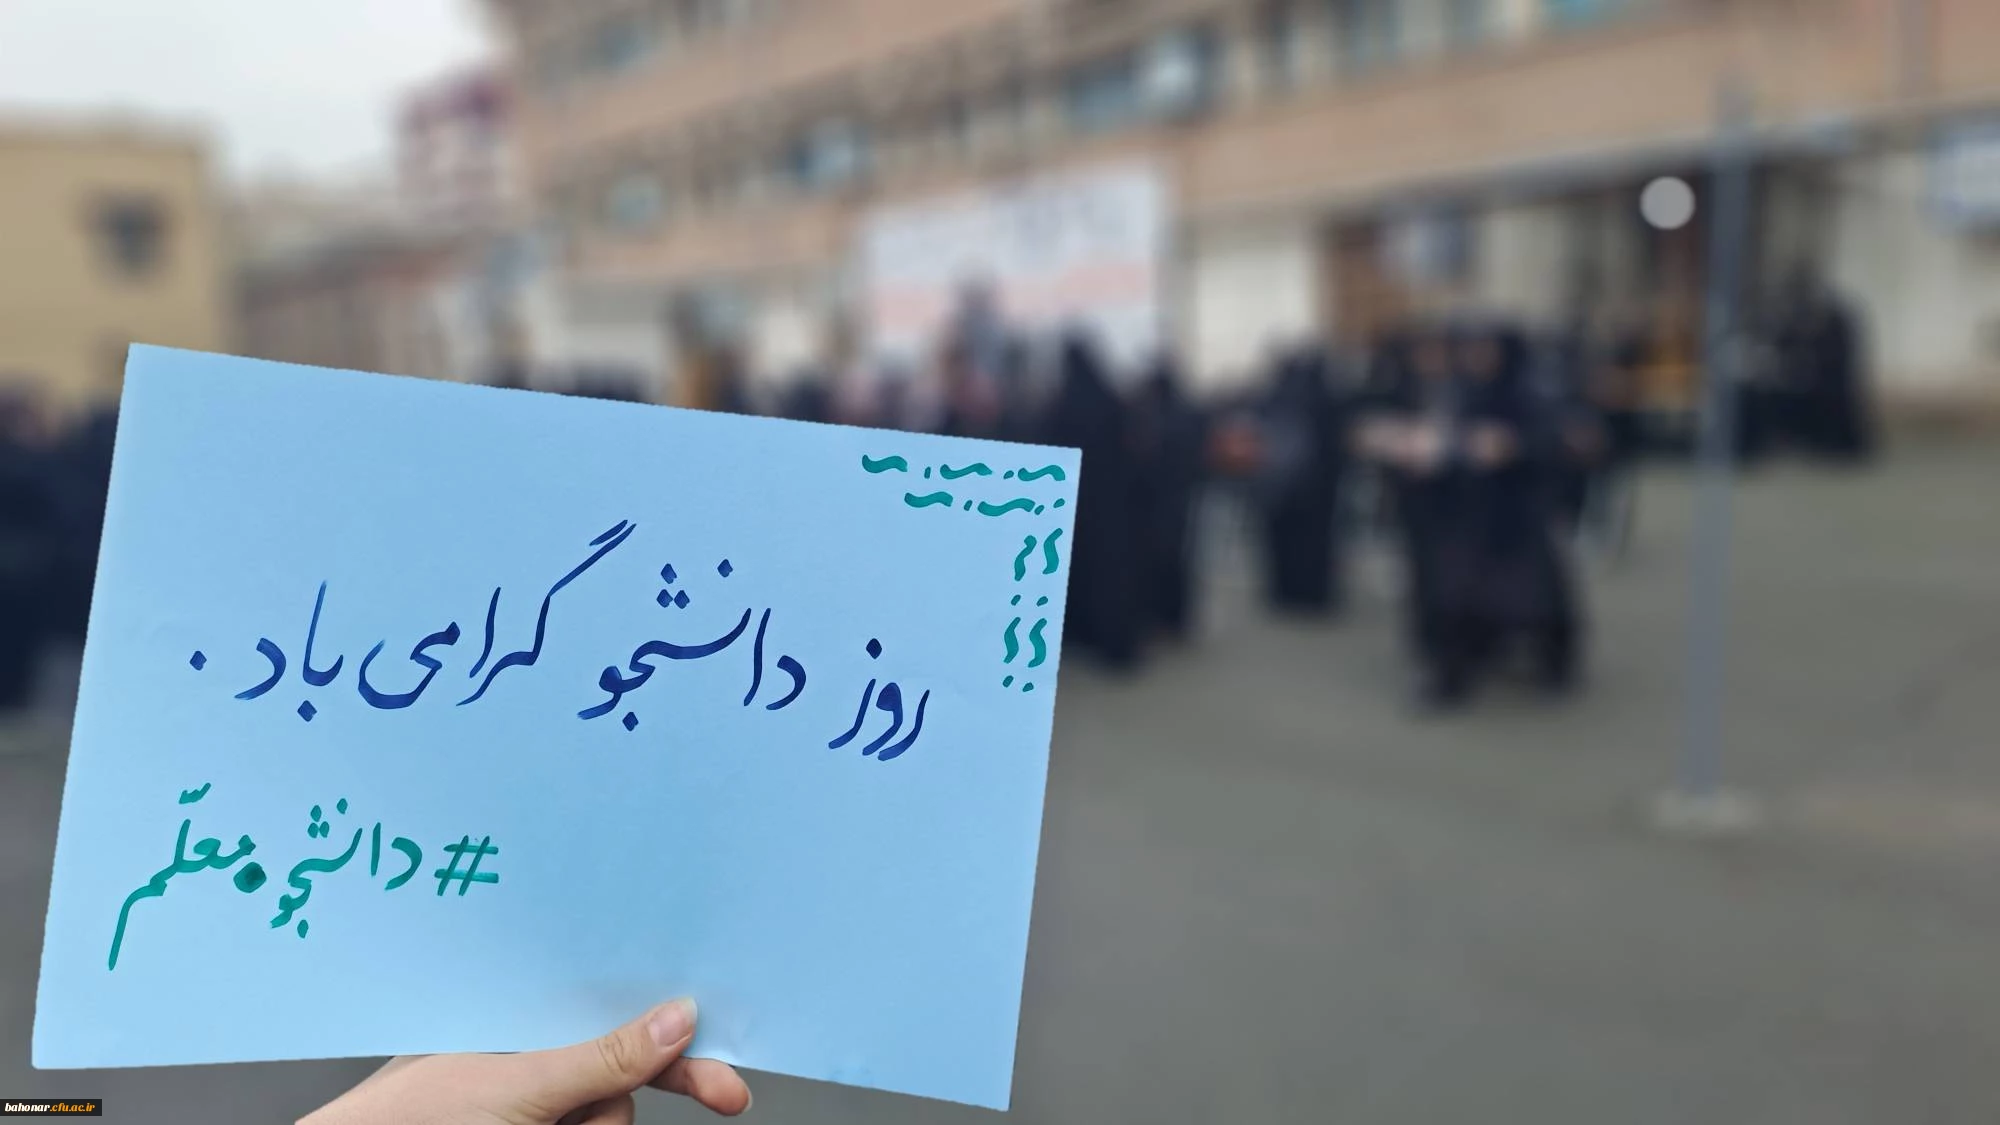 روز دانشجو گرامی باد.
#دانشجو معلّم
bahonar.cfu.ac.ir